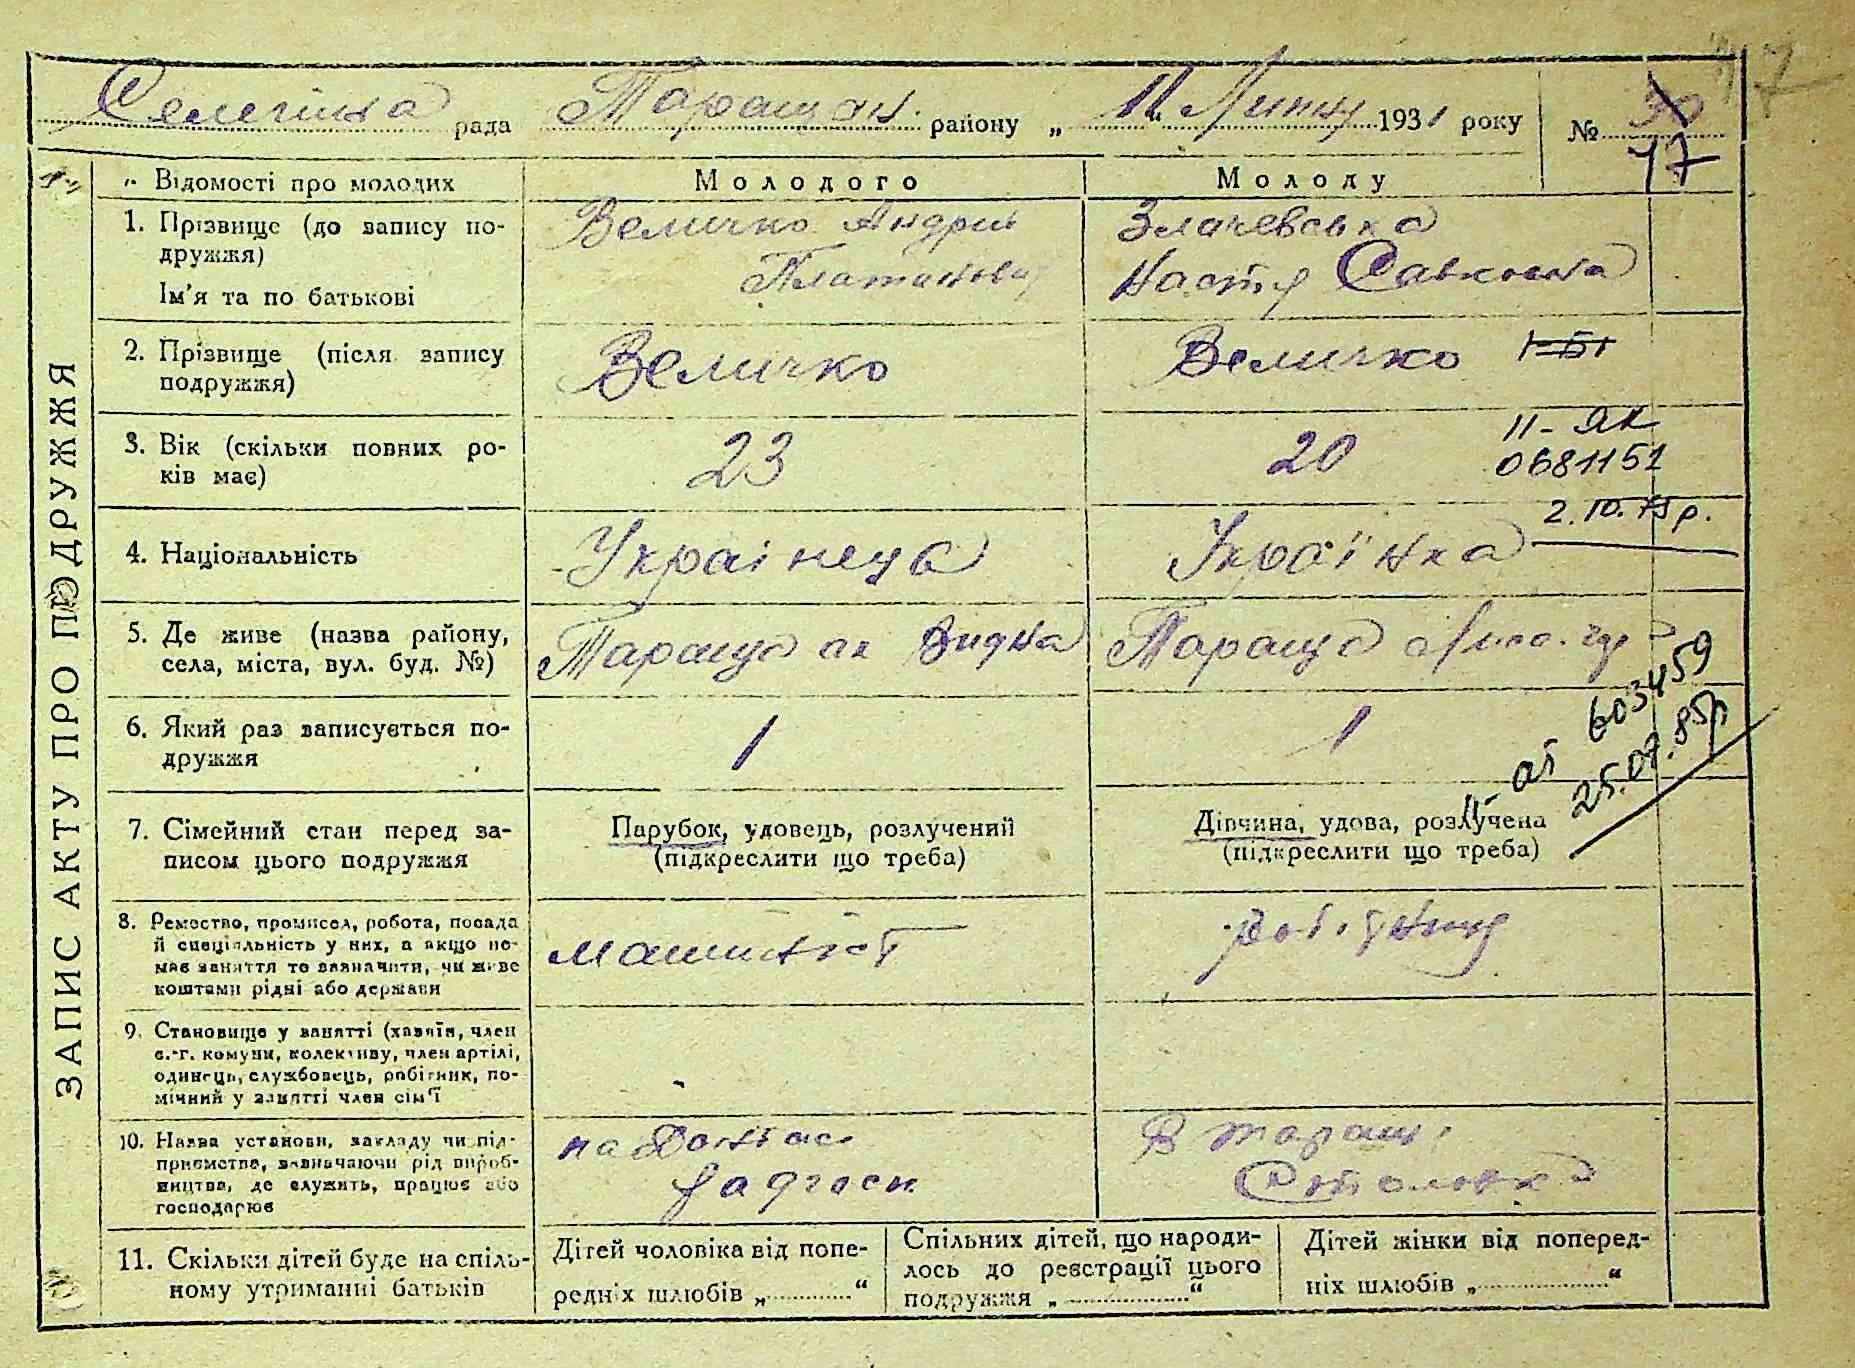 рада Таращан. району „ 11 “ Лютня 1931 року № 30
17
17
ЗАПИС АКТУ ПРО ПОДРУЖЖЯ
Відомості про молодих Молодого Молоду
1. Прізвище (до запису по-
дружжя)
Ім'я та по батькові
Величко Андрій
Платонович
Злачевська
Настя Савковна
2. Прізвище (після запису
подружжя)
Величко
Величко I-БІ
3. Вік (скільки повних ро-
ків має)
23
20
II-ЯК
0681151
2.10.р.
4. Національність
Українець
Українка
5. Де живе (назва району,
села, міста, вул. буд. №)
Тараща
Тараща
6. Який раз записується по-
дружжя
1
1
603459
25.07.85р
7. Сімейний стан перед за-
писом цього подружжя
Парубок, удовець, розлучений
(підкреслити що треба)
Дівчина, удова, розлучена
(підкреслити що треба)
8. Ремество, промисел, робота, посада
й спеціяльність у них, а якщо не-
має заняття то зазначити, чи живе
коштами рідні або держави
машиніст
робітниця
9. Становище у занятті (хазяїн, член
с.-г. комуни, колективу, член артілі,
одинець, службовець, робітник, по-
мічний у занятті член сім'ї
10. Назва установи, закладу чи під-
приємства, зазначаючи рід вироб-
ництва, де служить, працює або
господарює
на Донбас
радгосп
В Таращі
Столовка
11. Скільки дітей буде на спіль-
ному утриманні батьків
Дітей чоловіка від попе-
редніх шлюбів „ “
Спільних дітей, що народи-
лось до реєстрації цього
подружжя „ “
Дітей жінки від поперед-
ніх шлюбів „ “